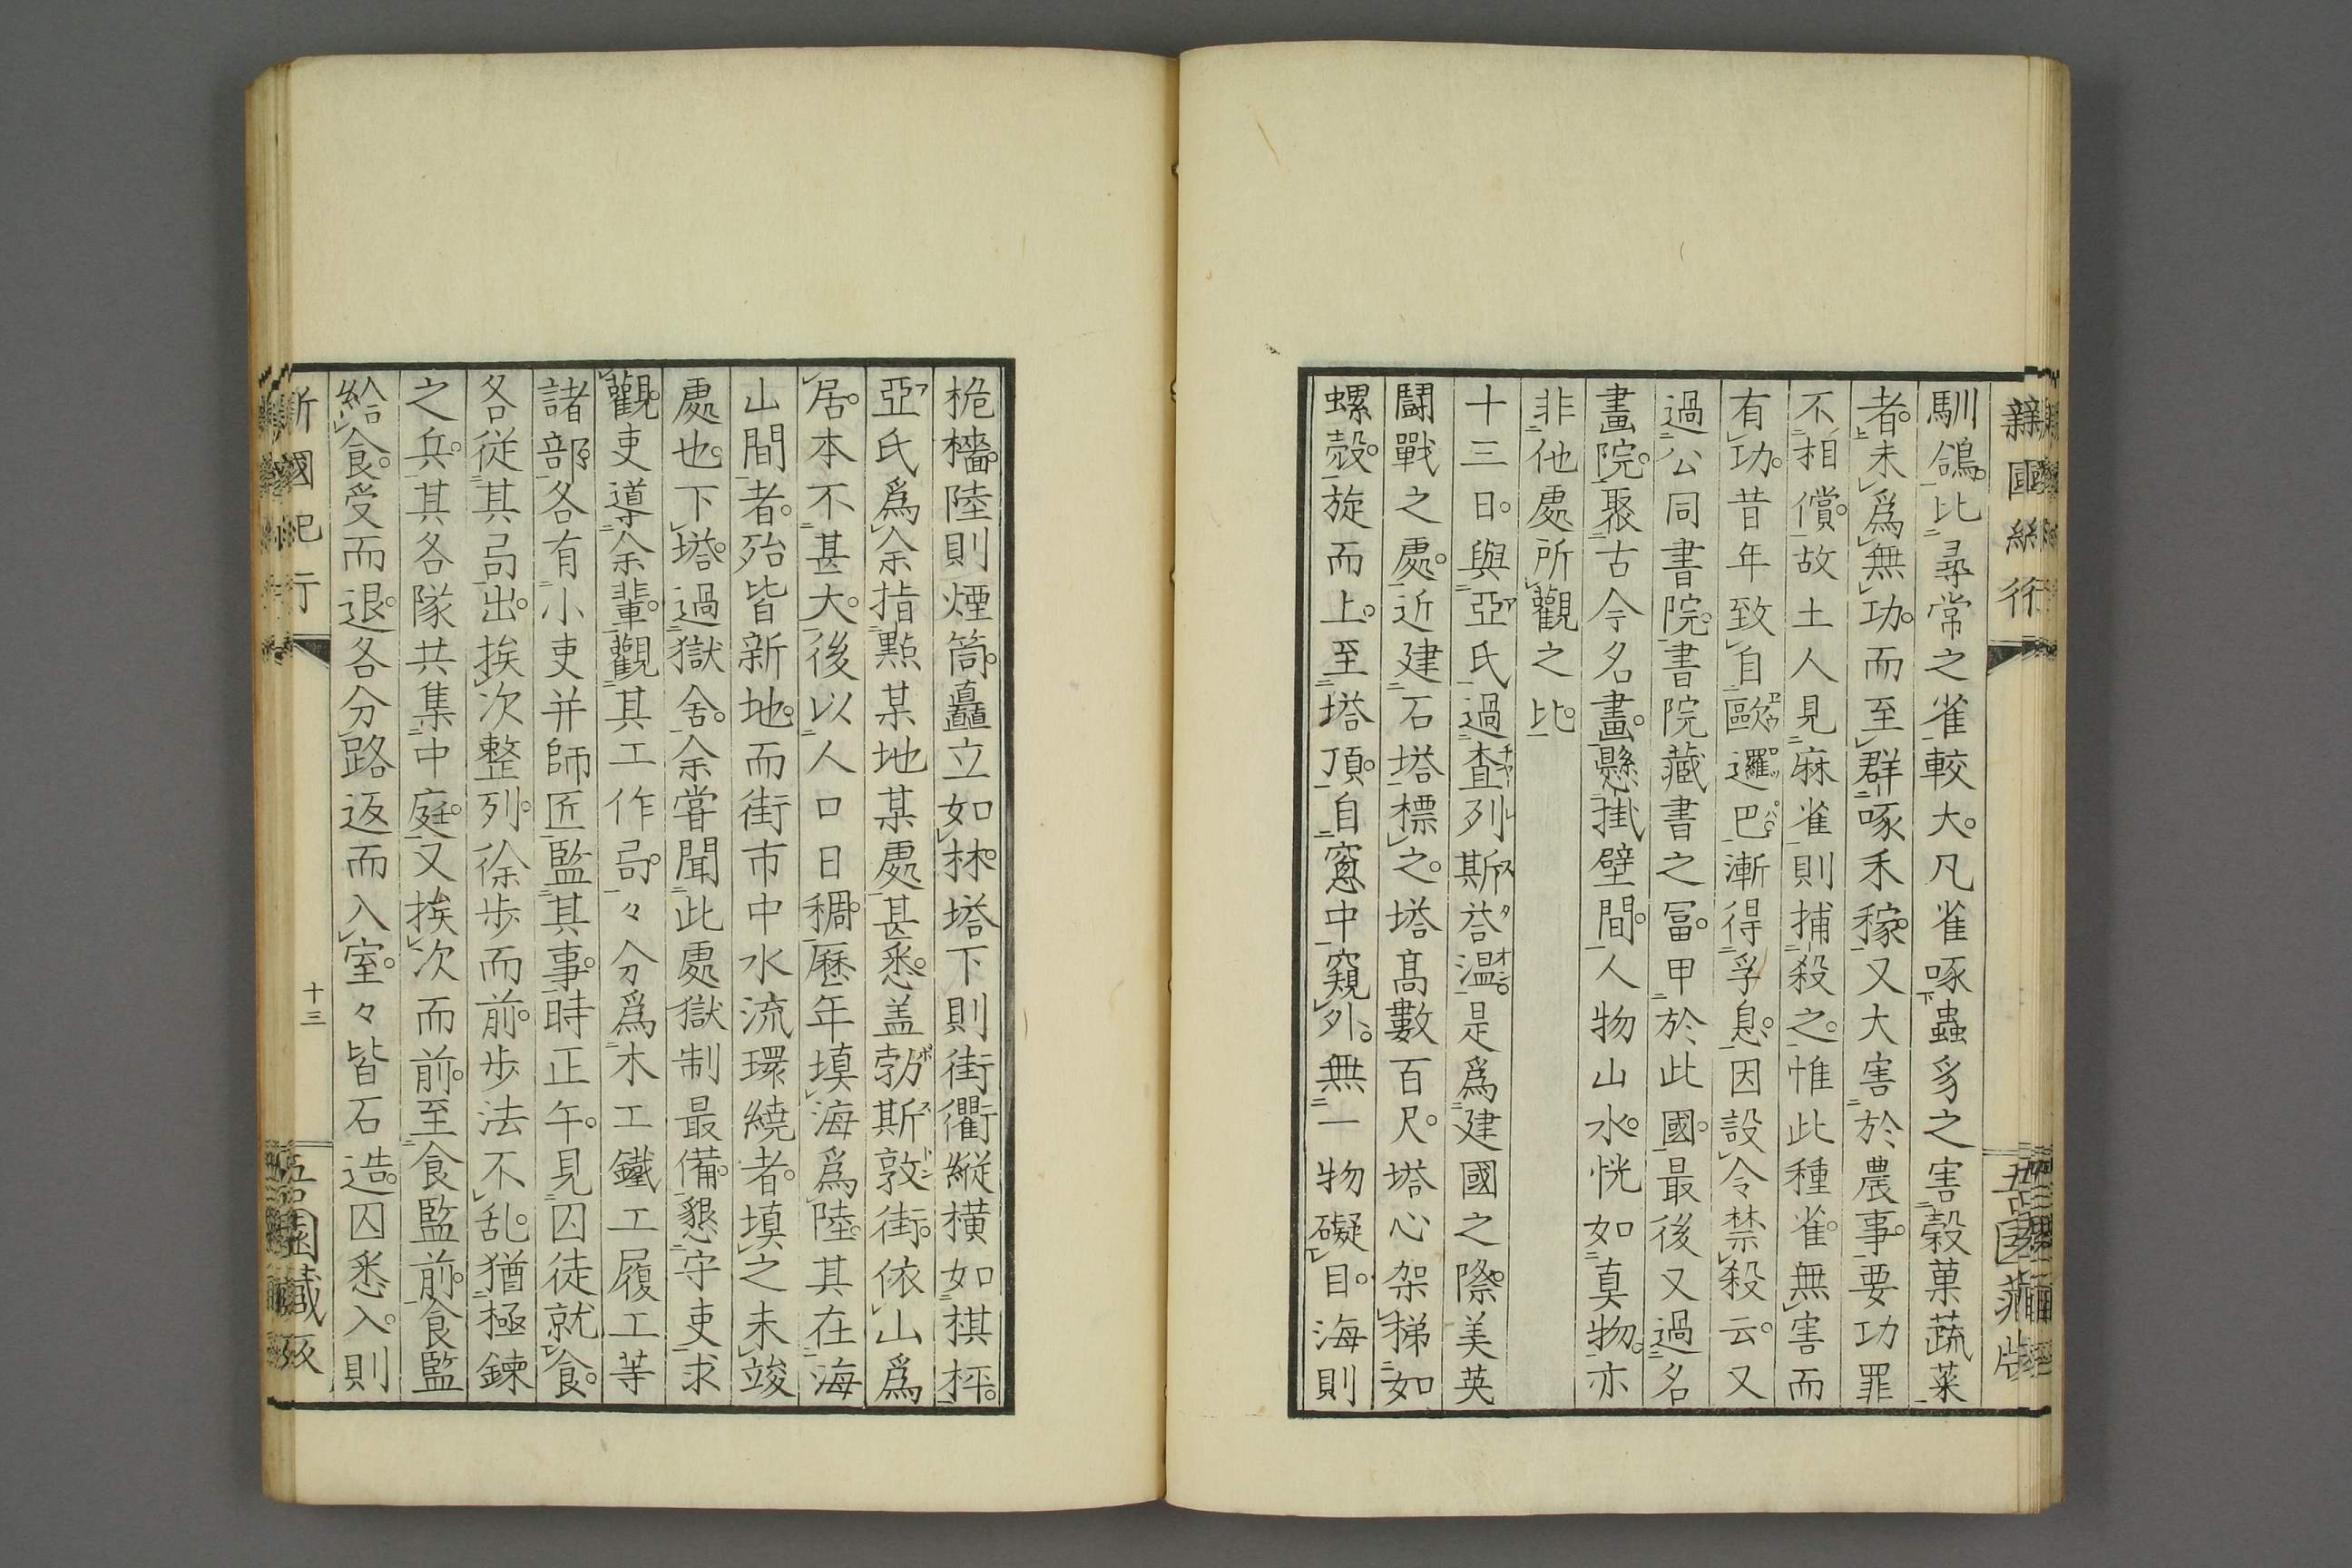 馴鴿。比尋常之雀較大。凡雀啄蟲豸之害穀菓蔬菜
者。未爲無功。而至群啄禾稼。又大害於農事。要功罪
不相償。故土人見麻雀則捕殺之。惟此種雀。無害而
有功。昔年致自歐邏巴漸得孚息。因設令禁殺云。又
過公同書院。書院藏書之冨。甲於此國。最後又過名
畫院。聚古今名畫。懸掛壁間。人物山水。恍如真物。亦
非他處所觀之比。
十三日。與亞氏過査列斯荅溫。是爲建國之際。美英
鬪戰之處。近建石塔標之。塔髙數百尺。塔心架梯如
螺殼。旋而上。至塔頂。自窓中窺外。無一物礙目。海則
桅檣。陸則煙筒。矗立如林。塔下則街衢縦横如棋枰。
亞氏爲余指㸃某地某處甚悉。盖勃斯敦街。依山爲
居。本不甚大。後以人口日稠。歷年塡海爲陸。其在海
山間者。殆皆新地。而街市中水流環繞者。塡之未竣
處也。下塔。過獄舍。余甞聞此處獄制最備。懇守吏求
觀。吏導余輩。觀其工作局。々分爲木工鐵工履工等
諸部。各有小吏并師匠監其事。時正午。見囚徒就食。
各從其局出。挨次整列。徐步而前。步法不乱。猶極鍊
之兵。其各隊共集中庭。又挨次而前。至食監前。食監
給食。受而退。各分路返而入室。々皆石造。囚悉入。則
十三